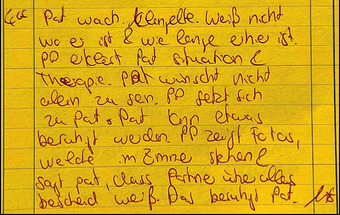 Pat wach. Klingelte. Weiß nicht
wo er ist & wie lange er hier ist.
PP erklärt Pat Situation &
Therapie. Pat wünscht nicht
allein zu sein. PP setzt sich
zu Pat. Pat kann etwas
beruhigt werden. PP zeigt Fotos,
welche im Zimmer stehen &
sagt Pat, dass Partner über alles
bescheid weiß. Das beruhigt Pat.